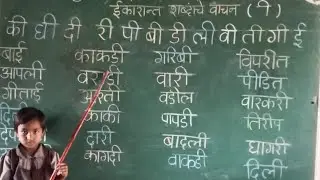 ईकारान्त शब्दांचे वाचन (ी)
की घी दी री पी बी डी ली वी ती गी ई
बाई काकडी गारवी विपरीत
आपली वरडी वारी पीडित
गीताई आरती वडील वारकरी
काकी पापडी तिरीप
दारी बादली घागरी
कागदी वाकडी दिली